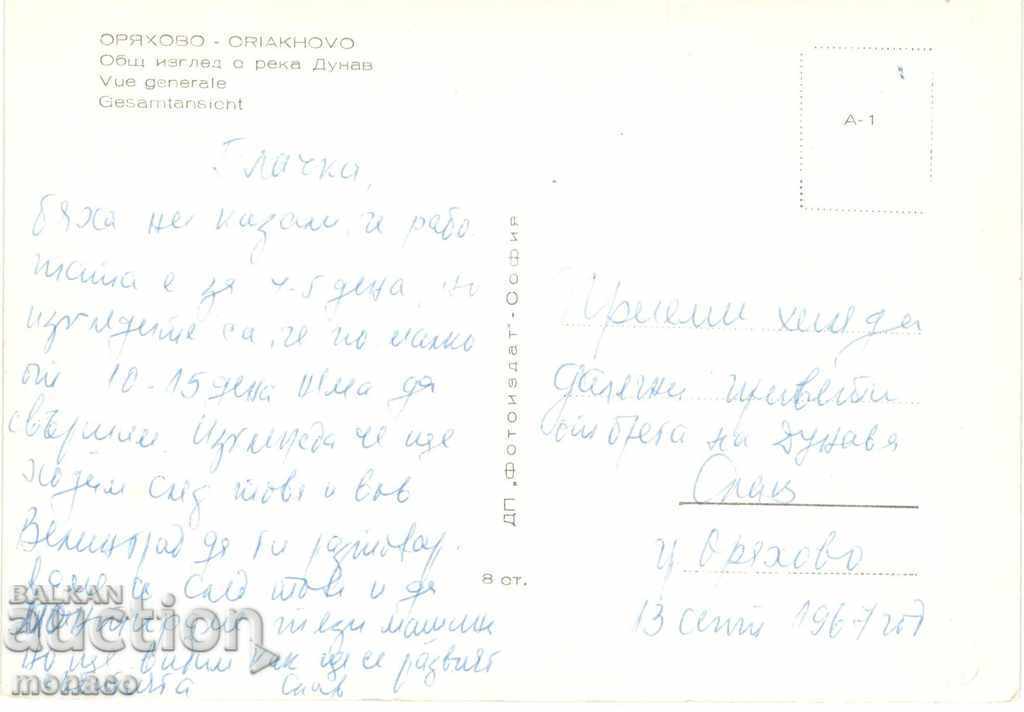 ОРЯХОВО - ORIAKHOVO
Общ изглед с река Дунав
Vue generale
Gesamtansicht
А-1
бяха ни казали, че рабо
тата е за 4-5 дена, но
изгледите са, че по малко
от 10-15 дена няма да
свършим. Изглежда че ще
ходим след това и във
Велинград да ги разтовар
след това и да
монтираме тези машини
но ще видим как ще се развият
ДП „ФОТОИЗДАТ"-СОФИЯ
8 ст.
Приеми хиляди
далечни привети
от брега на Дунава
Слав
Оряхово
13 септ 1967 год
BALKAN
auction
monaco